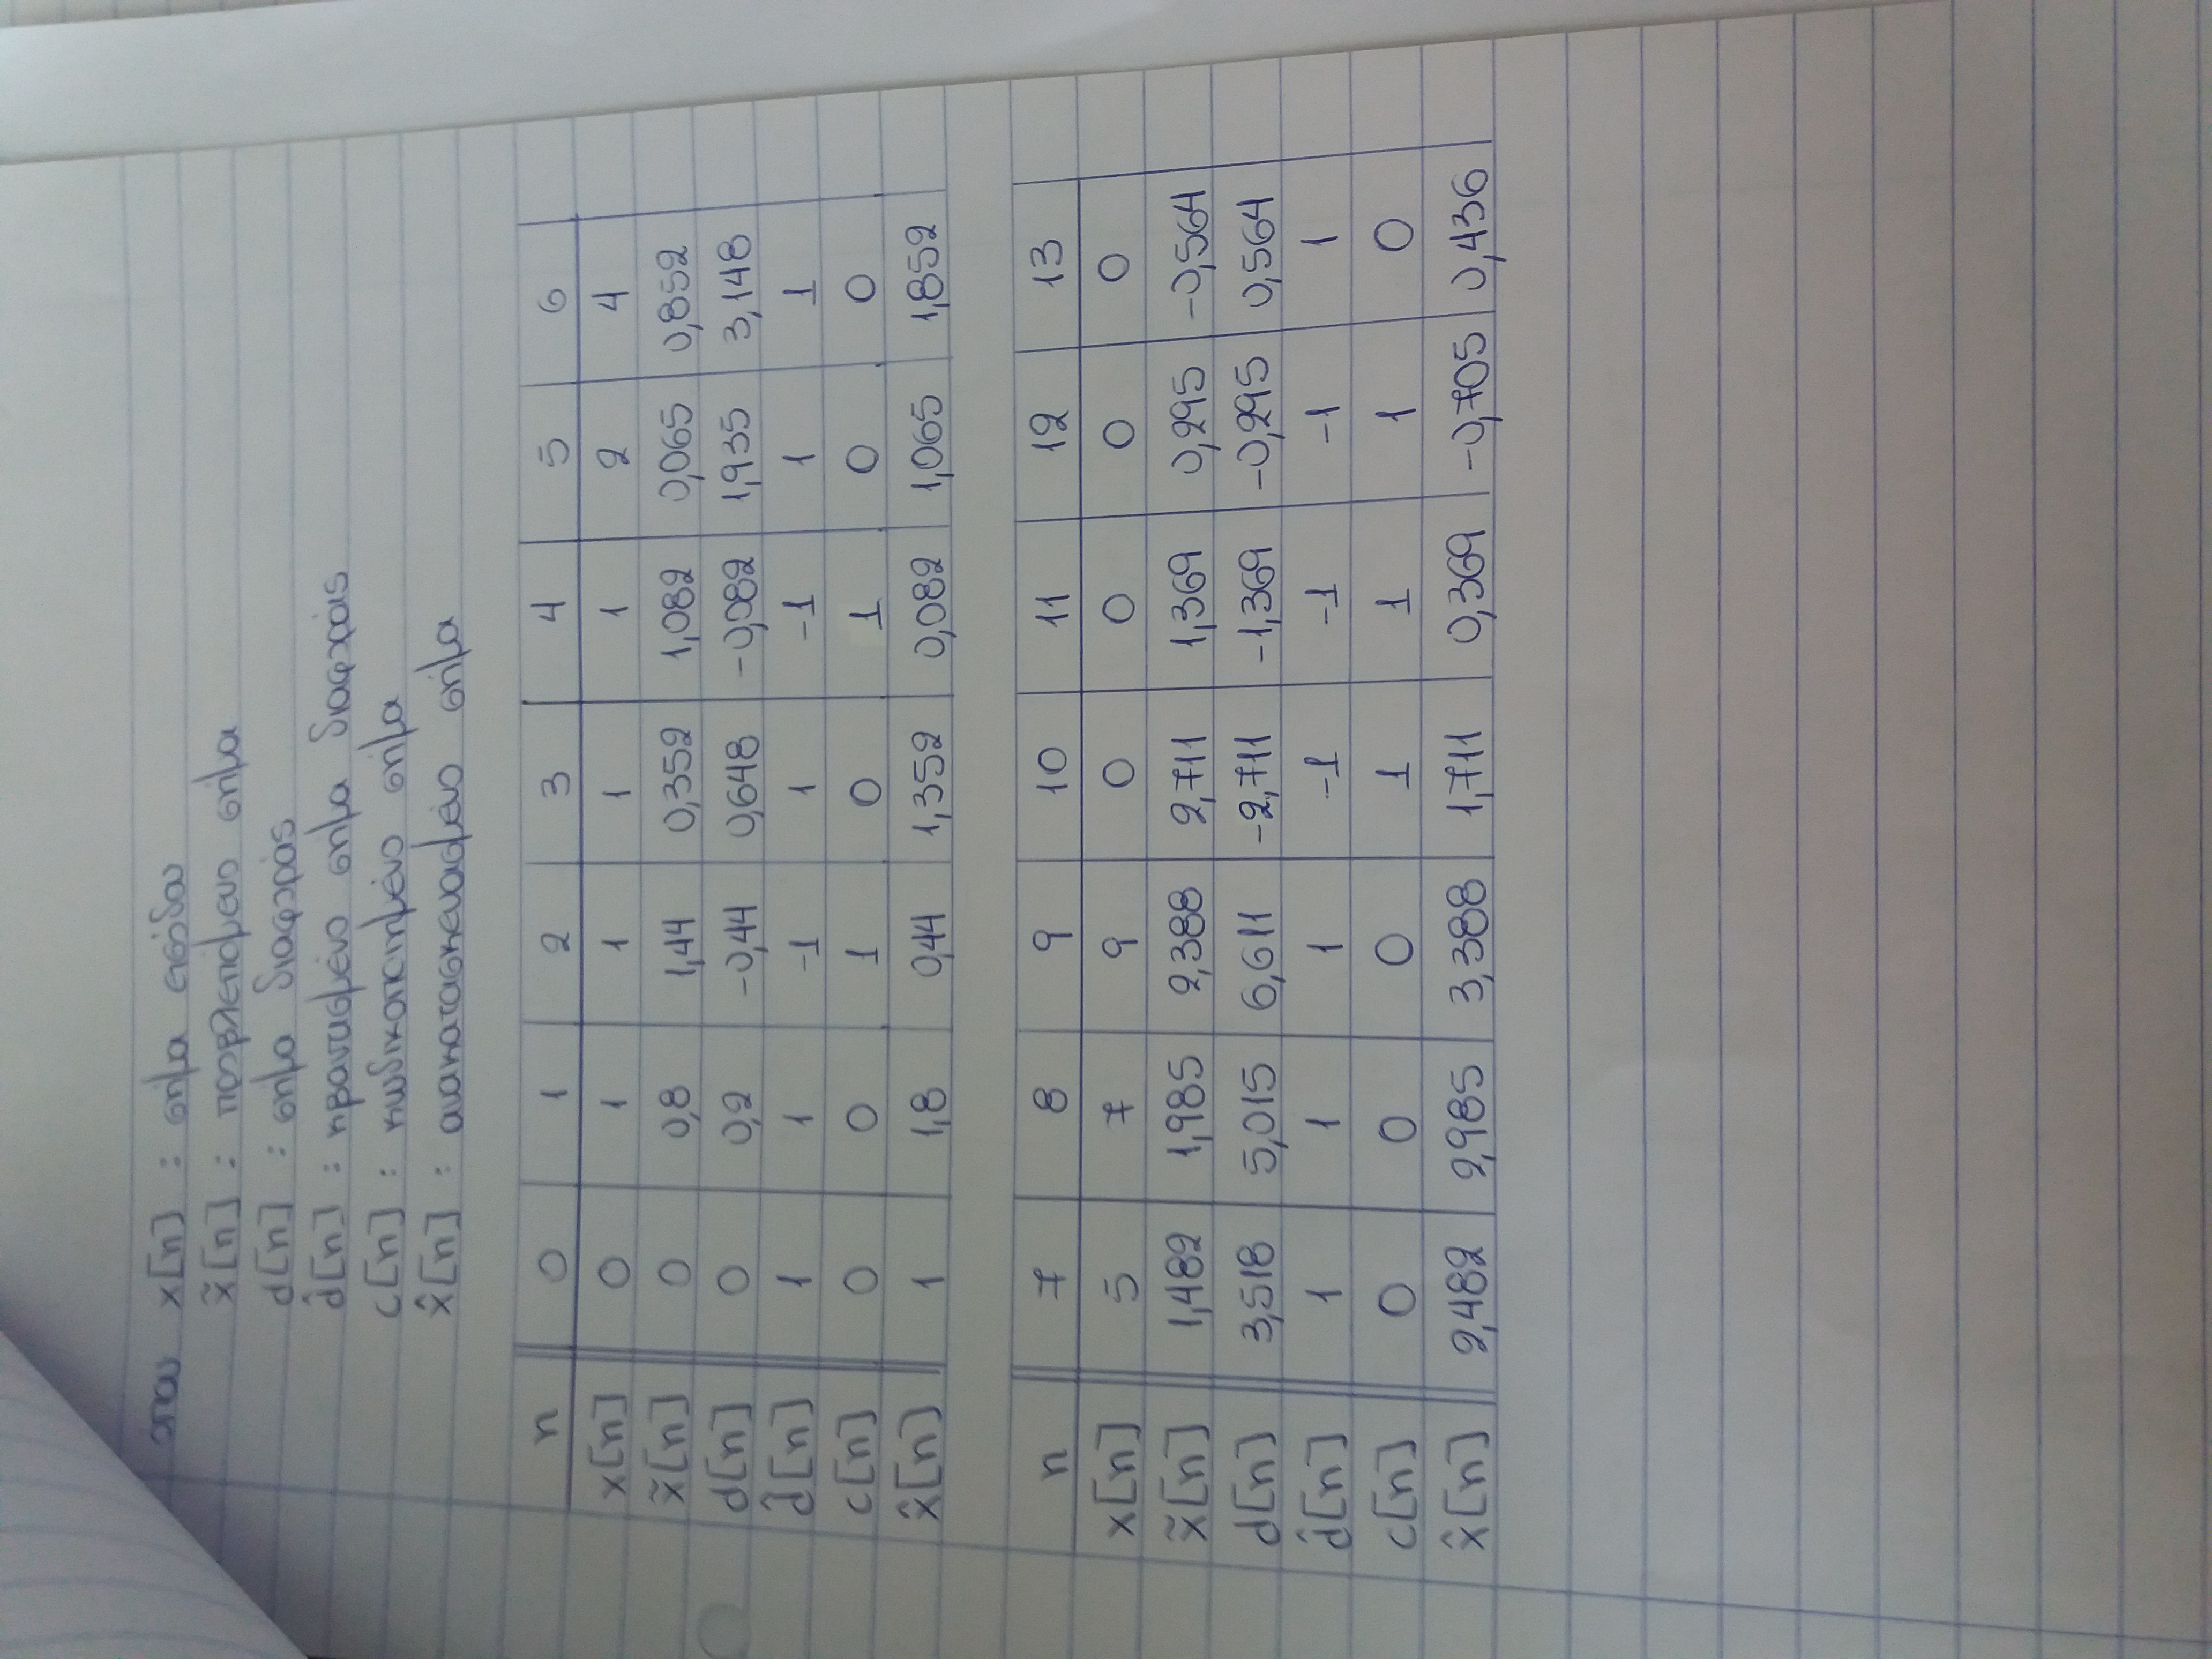 όπου x[n] : σήμα εισόδου
x̃[n] : προβλεπόμενο σήμα
d[n] : σήμα διαφοράς
d̂[n] : κβαντισμένο σήμα διαφοράς
c[n] : κωδικοποιημένο σήμα
x̂[n] : ανακατασκευασμένο σήμα
n 0 1 2 3 4 5 6
x[n] 0 1 1 1 1 2 4
x̃[n] 0 0,8 1,44 0,352 1,082 0,065 0,852
d[n] 0 0,2 -0,44 0,648 -0,082 1,935 3,148
d̂[n] 1 1 -1 1 -1 1 1
c[n] 0 0 1 0 1 0 0
x̂[n] 1 1,8 0,44 1,352 0,082 1,065 1,852
n 7 8 9 10 11 12 13
x[n] 5 7 9 0 0 0 0
x̃[n] 1,482 1,985 2,388 2,711 1,369 0,295 -0,564
d[n] 3,518 5,015 6,611 -2,711 -1,369 -0,295 0,564
d̂[n] 1 1 1 -1 -1 -1 1
c[n] 0 0 0 1 1 1 0
x̂[n] 2,482 2,985 3,388 1,711 0,369 -0,705 0,436